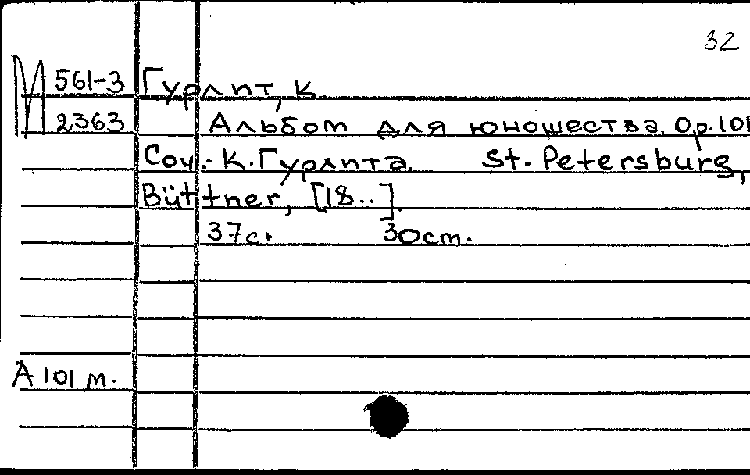 32
М 561-3 Гурлит, К
2363 Альбом для юношества. Op.101
Соч.. К. Гурлита. St. Petersburg,
Büttner, [18..].
37с. 30cm.
А 101 м.